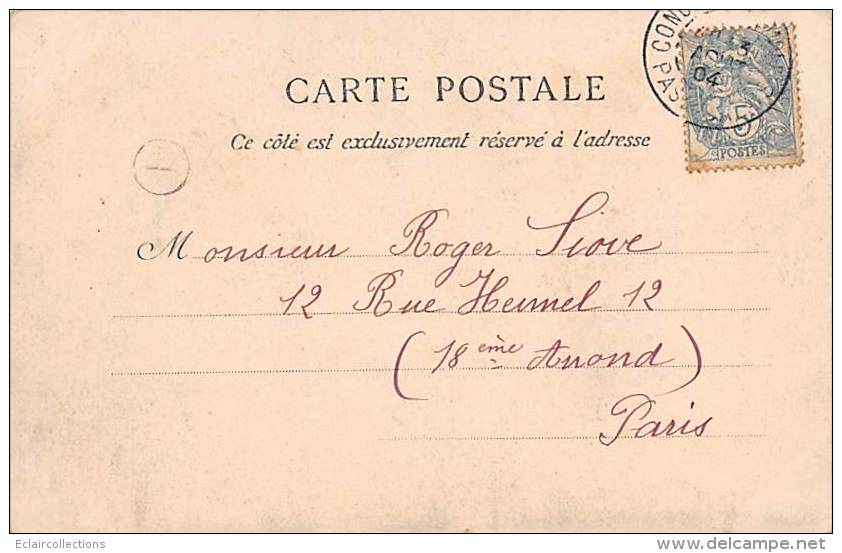 CARTE POSTALE
Ce côté est exclusivement réservé à l'adresse
5
POSTES
04
PAS
Monsieur Roger
12 Rue Hermel 12
(18ème Arrond)
Paris
Eclaircollections
www.delcampe.net